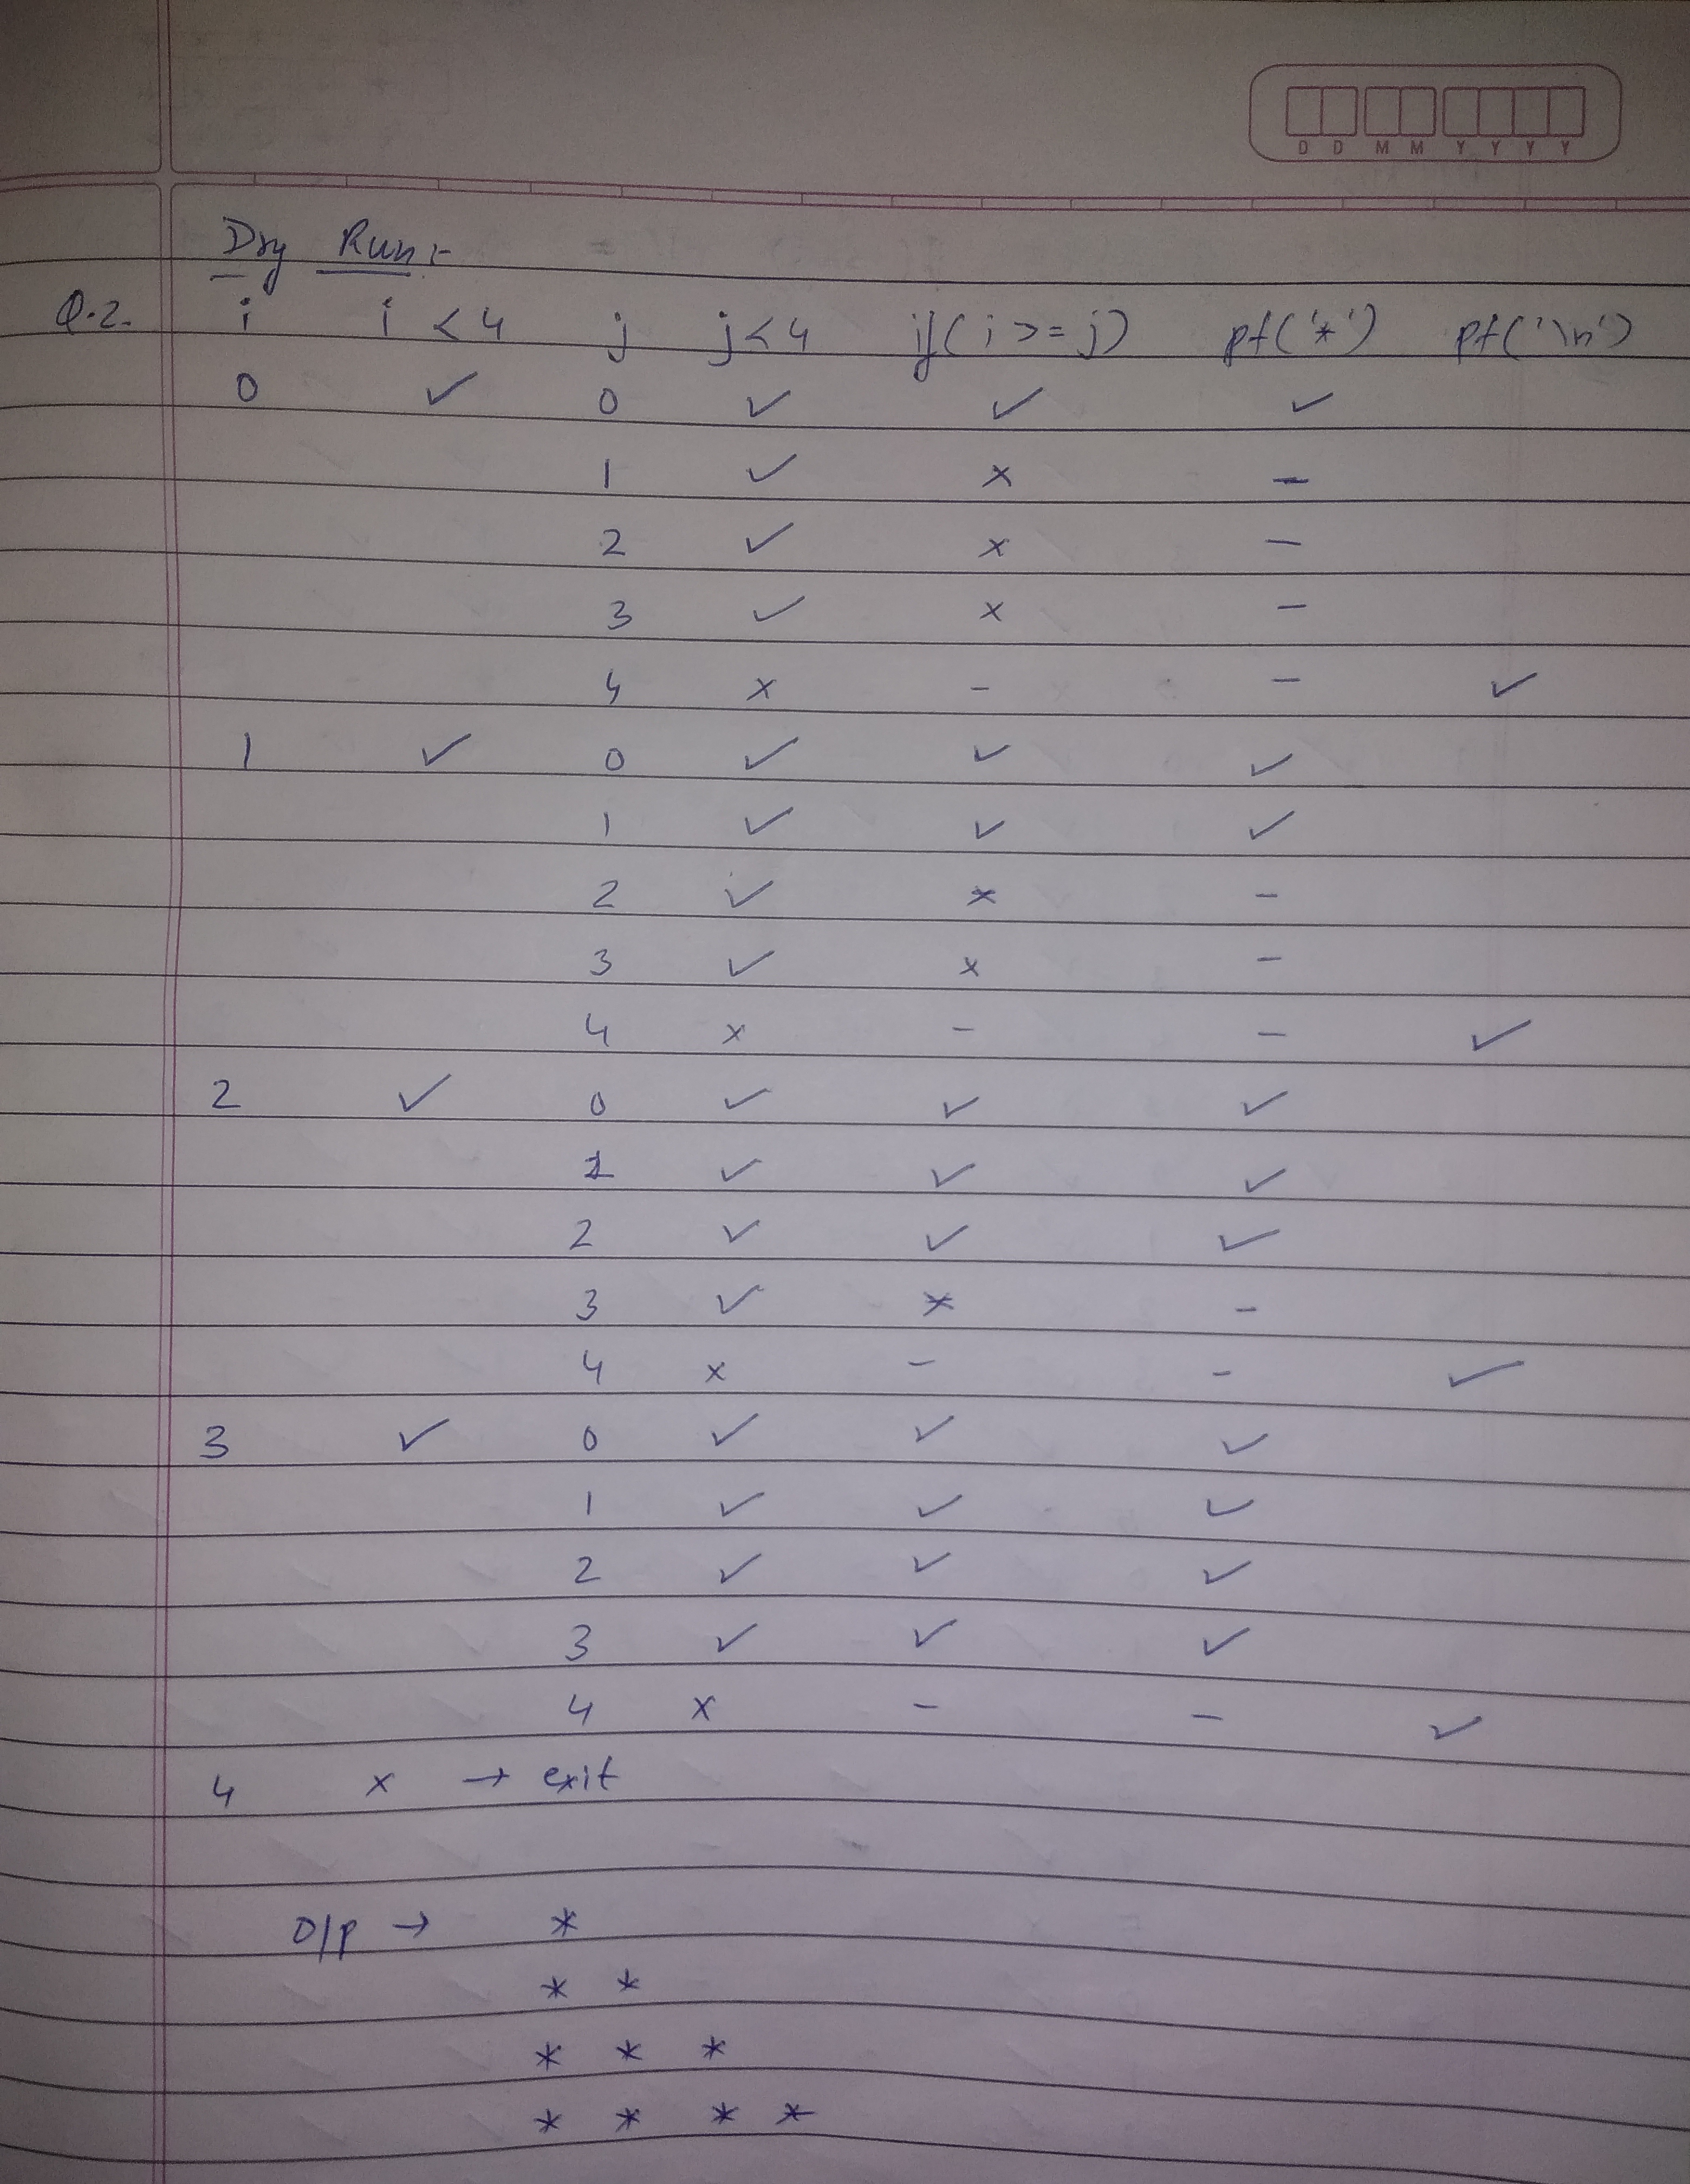 D D M M Y Y Y Y
Dry Run:-
Q.2. i i < 4 j j < 4 if(i >= j) pf('*') pf('\n')
0 ✓ 0 ✓ ✓ ✓
1 ✓ × –
2 ✓ × –
3 ✓ × –
4 × – – ✓
1 ✓ 0 ✓ ✓ ✓
1 ✓ ✓ ✓
2 ✓ × –
3 ✓ × –
4 × – – ✓
2 ✓ 0 ✓ ✓ ✓
1 ✓ ✓ ✓
2 ✓ ✓ ✓
3 ✓ × –
4 × – – ✓
3 ✓ 0 ✓ ✓ ✓
1 ✓ ✓ ✓
2 ✓ ✓ ✓
3 ✓ ✓ ✓
4 × – – ✓
4 × → exit
O/P → *
* *
* * *
* * * *